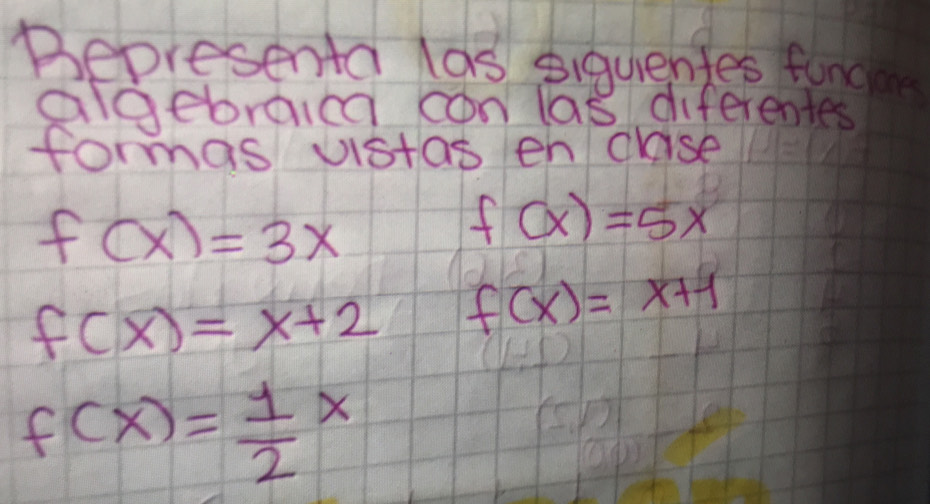 Representa las siguientes funciones
algebraica con las diferentes
formas vistas en clase
f(x)=3x f(x)=5x
f(x)=x+2 f(x)=x+1
f(x)=1/2 x